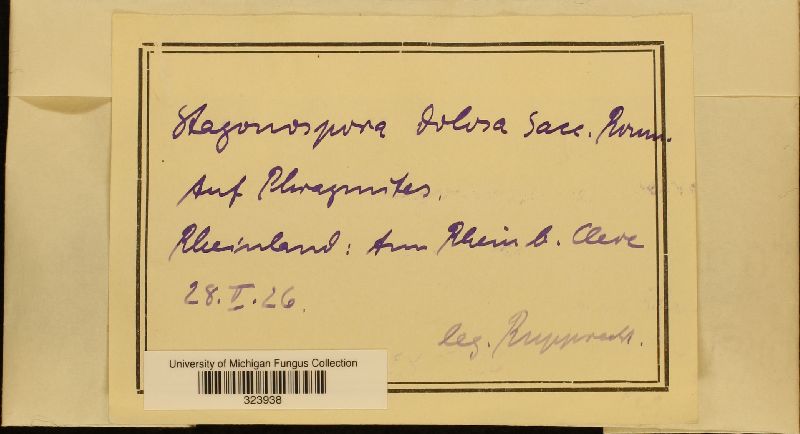 Stagonospora dolosa Sacc. Roum.
Auf Phragmites.
Rheinland: Am Rhein b. Cleve
28.II.26.
leg. Rupprecht.
University of Michigan Fungus Collection
323938